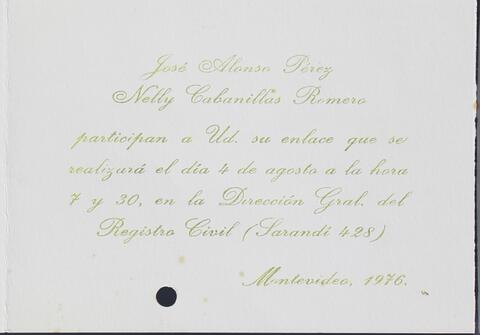 José Alonso Pérez
Nelly Cabanillas Romero
participan a Ud. su enlace que se
realizará el día 4 de agosto a la hora
7 y 30, en la Dirección Gral. del
Registro Civil (Sarandí 428)
Montevideo, 1976.